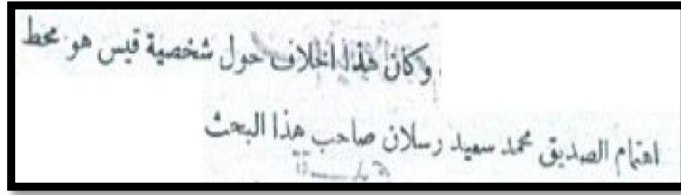 وكان هذا الخلاف حول شخصية قيس هو محط
اهتمام الصديق محمد سعيد رسلان صاحب هذا البحث